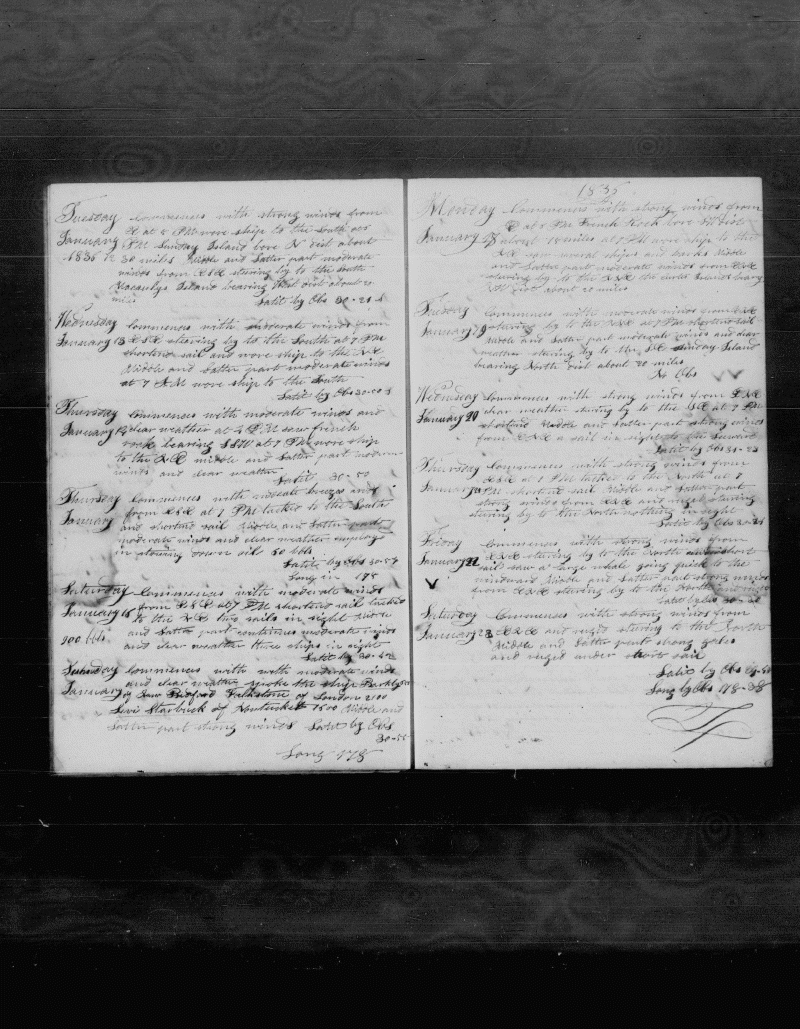 Tuesday Commences with strong winds from
January at 4 PM wore ship to the South at 5
1836 12 PM Sunday Island bore N dist about
30 miles Middle and Latter part moderate
winds from ESE steering by to the South
Macaulys Island bearing West dist about 20
miles Latit by Obs 30-21 S
Wednesday Commences with moderate winds from
January 13 ESE steering by to the South at 7 PM
shortend sail and wore ship to the NE
Middle and Latter part moderate winds
at 7 AM wore ship to the South
Latit by Obs 30-00 S
Thursday Commences with moderate winds and
January 14 clear weather at 4 PM saw french
rock bearing SSW at 7 PM wore ship
to the NE middle and Latter part moderate
winds and clear weather
Latit 30-50
Thursday Commences with moderate breezes and
January from ESE at 7 PM tacked to the South
and shortend sail Middle and Latter part
moderate winds and clear weather employed
in stowing down oil 50 bbls
Latit by Obs 30-57
Long in 178
Saturday Commences with moderate winds
January 16 from ESE at 7 PM shortend sail tacked
to the NE two sails in sight
900 bbls and Latter part continues moderate winds
and clear weather three ships in sight
Latit by 30-52
Sunday Commences with moderate winds
and clear weather spoke the ship
January 17 New Bedford of London 2100
Levi Starbuck of Nantucket 1500 Middle and
Latter part strong winds Latit by Obs
30-55
Long 178
1836
Monday Commences with strong winds from
E at 5 PM French Rock bore SW dist
January 18 about 15 miles at 7 PM wore ship to the
NE saw several ships and barks Middle
and Latter part moderate winds from ENE
steering by to the the Island bearing
dist about 20 miles
Tuesday Commences with moderate winds from
January 19 steering by to the at 7 PM shortend sail
Middle and Latter part moderate winds and clear
weather steering by to the SE Sunday Island
bearing North dist about 20 miles
No Obs
Wednesday Commences with strong winds from ENE
clear weather steering by to the SE at 7 PM
January 20 shortend Middle and Latter part strong winds
from ENE a sail in sight to the
Latit by Obs 31-23
Thursday Commences with strong winds from
at 1 PM tacked to the North at 7
January PM shortend sail Middle and Latter part
strong winds from ENE and steering
steering by to the North nothing in sight
Latit by Obs
Friday Commences with strong winds from
January 22 ENE steering by to the North short
sail saw a large whale going quick to the
windward Middle and Latter part strong winds
from ENE steering by to the North
Latit by Obs
Saturday Commences with strong winds from
January 23 ENE and steering to the North
Middle and Latter part strong gales
and under short sail
Latit by Obs
Long by Obs 178-38